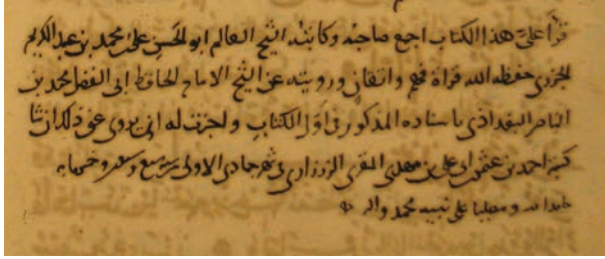 قرأ علي هذا الكتاب اجمع صاحبه وكاتبه الشيخ العالم ابو الحسن علي بن محمد بن عبد الكريم
الجزري حفظه الله قراة فهم واتقان ورويته عن الشيخ الامام الحافظ ابي الفضل محمد بن
الناصر البغداذي باسناده المذكور في اول الكتاب واجزت له ان يروي عني ذلك ان شا
كتبه احمد بن عثمن بن ابي علي بن مهدي المقري الزرزاري في شهر جمادى الاولى سنة سبع وتسعين وخمسمايه
حامدا لله ومصليا على نبيه محمد واله